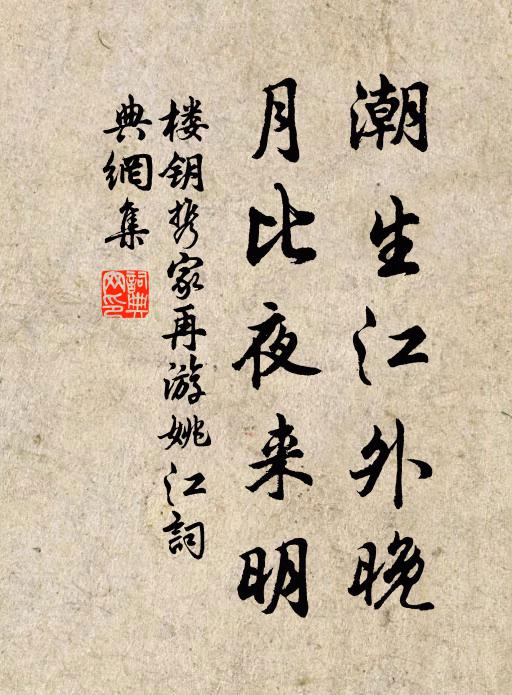 潮生江外晚
月比夜来明
楼钥携家再游姚江詞
典網集
詞典
网印